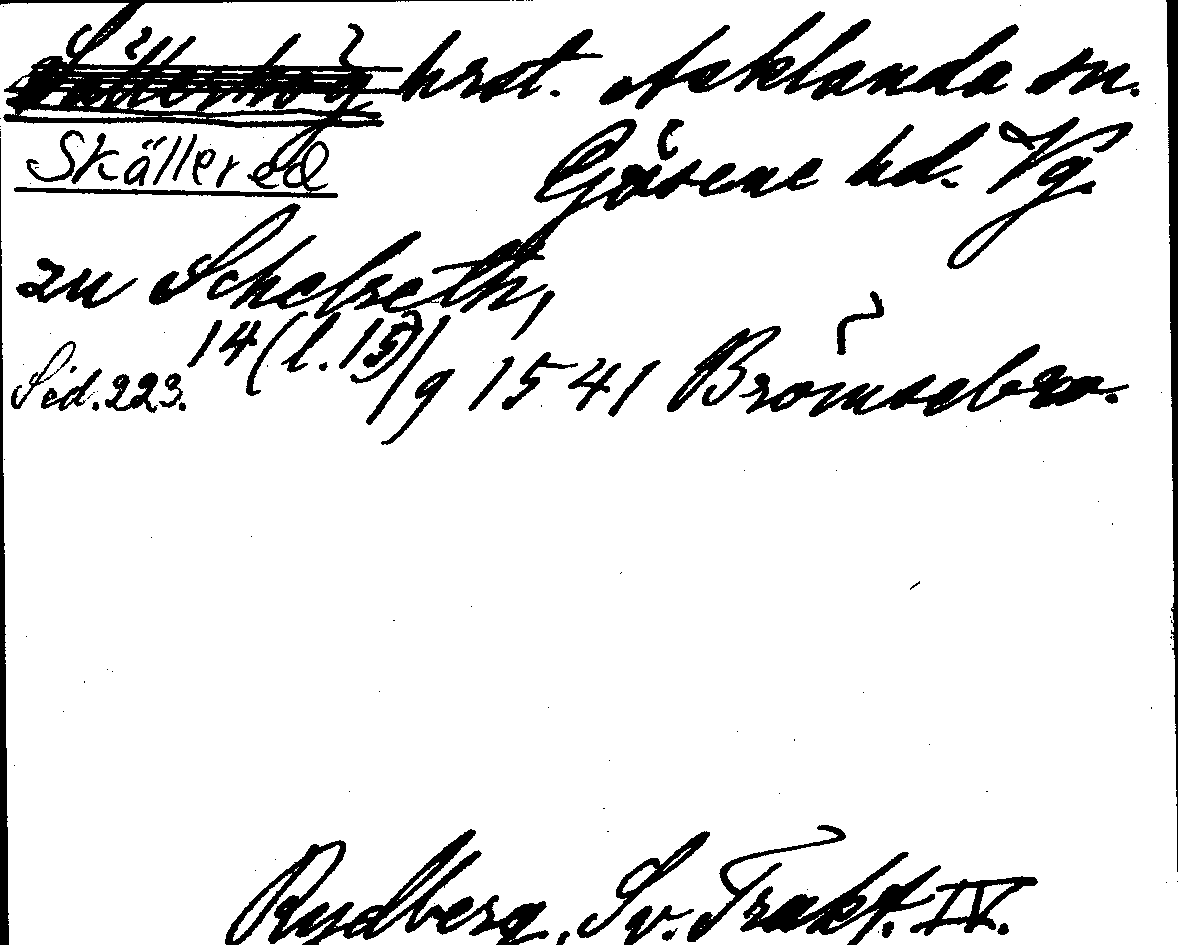 hrst. Asklanda sn.
Skällered Gäsene hd. Vg.
zu Schelseth,
Sid. 223. 14 (l. 15)/9 1541 Brömsebro.
Rydberg, Sv. Trakt. IV.